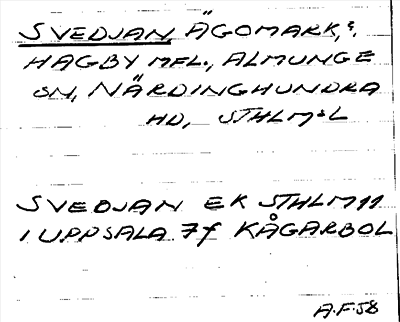 SVEDJAN ÄGOMARK,
HAGBY MFL., ALMUNGE
SN, NÄRDINGHUNDRA
HD, STHLMSL
SVEDJAN EK STHLM 11
I UPPSALA 7f KÅGARBOL
A.F.58